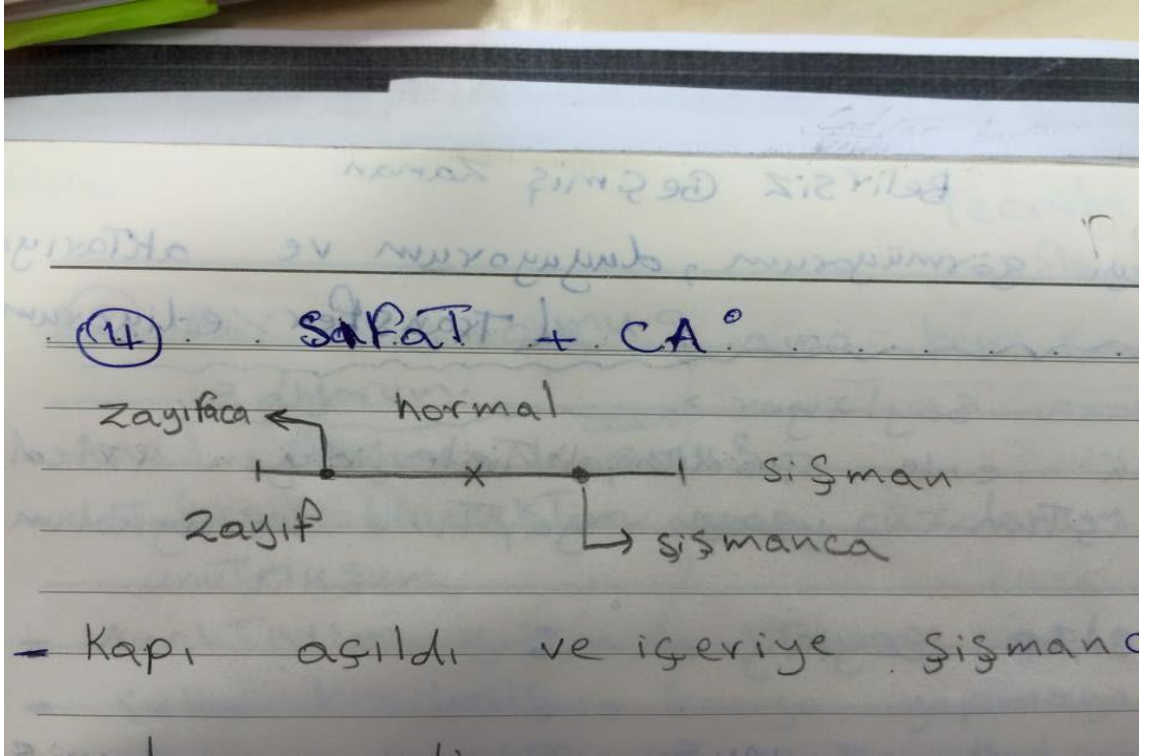 4 Sıfat + CA°
zayıfaca normal
şişman
zayıf
şişmanca
- Kapı açıldı ve içeriye şişmanc